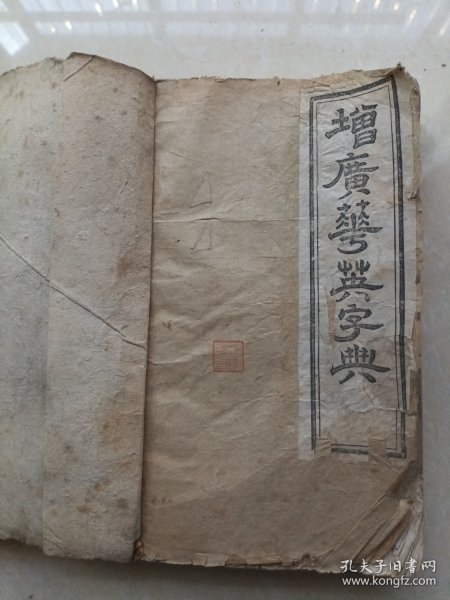 增廣華英字典
孔夫子旧书网
www.kongfz.com